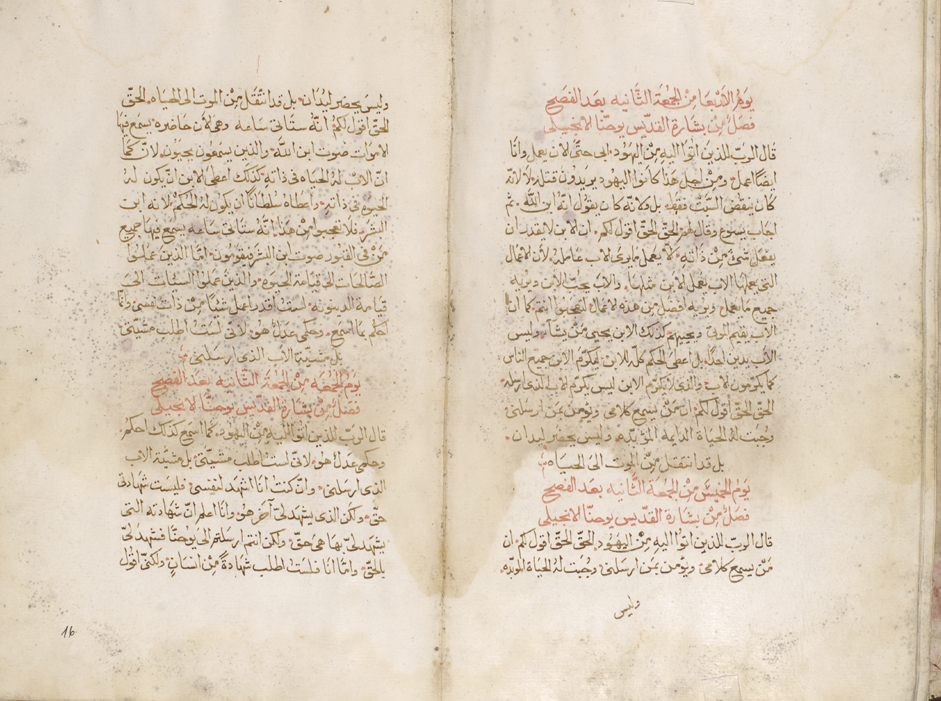 يوم الاربعا من الجمعة الثانيه بعد الفصح
فصل من بشارة القديس يوحنا الانجيلي
قال الرب للذين اتوا اليه من اليهود ابي حتى الان يعمل وانا
ايضا اعمل ومن اجل هذا كانوا اليهود يريدون قتله لا لانه
كان ينقض السبت فقط بل لانه كان يقول انه ابن الله ثم
اجاب يسوع وقال لهم الحق الحق اقول لكم ان الابن لا يقدر ان
يفعل شي من ذاته الا يعمل ما يرى الاب عامله لان الاعمال
التي يعملها الاب يعمل الابن مثلها والاب يحب الابن ويريه
جميع ما يعمل ويريه افضل من هذه الاعمال لتعجبوا انتم كما ان
الاب يقيم الموتى ويحييهم كذلك الابن يحيي من يشا وليس
الاب يدين احد بل اعطى الحكم كله للابن ليكرم الابن جميع الناس
كما يكرمون الاب والذي لا يكرم الابن ليس يكرم الاب الذي ارسله
الحق الحق اقول لكم ان من يسمع كلامي ويؤمن بمن ارسلني
وجبت له الحياة الدايمه المؤبده وليس يحضر ليدان
بل قد انتقل من الموت الى الحياه
يوم الخميس من الجمعة الثانيه بعد الفصح
فصل من بشارة القديس يوحنا الانجيلي
قال الرب للذين اتوا اليه من اليهود الحق الحق اقول لكم ان
من يسمع كلامي ويؤمن بمن ارسلني وجبت له الحياة المؤبده
وليس
وليس يحضر ليدان بل قد انتقل من الموت الى الحياه الحق
الحق اقول لكم انه ستاتي ساعه وهي الان حاضره يسمع فيها
الاموات صوت ابن الله والذين يسمعون يحيون لان كما
ان الاب له الحياه في ذاته كذلك اعطى الابن ان يكون له
الحيوه في ذاته واعطاه سلطانا ان يكون له الحكم لانه ابن
البشر فلا تعجبوا من هذا انه ستاتي ساعه يسمع فيها جميع
من في القبور صوت ابن البشر فيقومون امّا الذين عملوا
الصالحات الى قيامة الحيوه والذين عملوا السيئات الى
قيامة الدينونه لست اقدر اعمل شيا من ذات نفسي وانا
احكم بما اسمع وحكمي عدل هو لاني لست اطلب مشيتي
بل مشية الاب الذي ارسلني
يوم الجمعه من الجمعة الثانيه بعد الفصح
فصل من بشارة القديس يوحنا الانجيلي
قال الرب للذين اتوا اليه من اليهود كما اسمع كذلك احكم
وحكمي عدل هو لاني لست اطلب مشيتي بل مشية الاب
الذي ارسلني وان كنت انا اشهد لنفسي فليست شهادتي
حق ولكن الذي يشهد لي آخر هو وانا اعلم ان شهادته التي
يشهد لي بها هي حق ولكن انتم ارسلتم الى يوحنا فشهد لي
بالحق وامّا انا فلست اطلب شهادة من انسان ولكني اقول
16